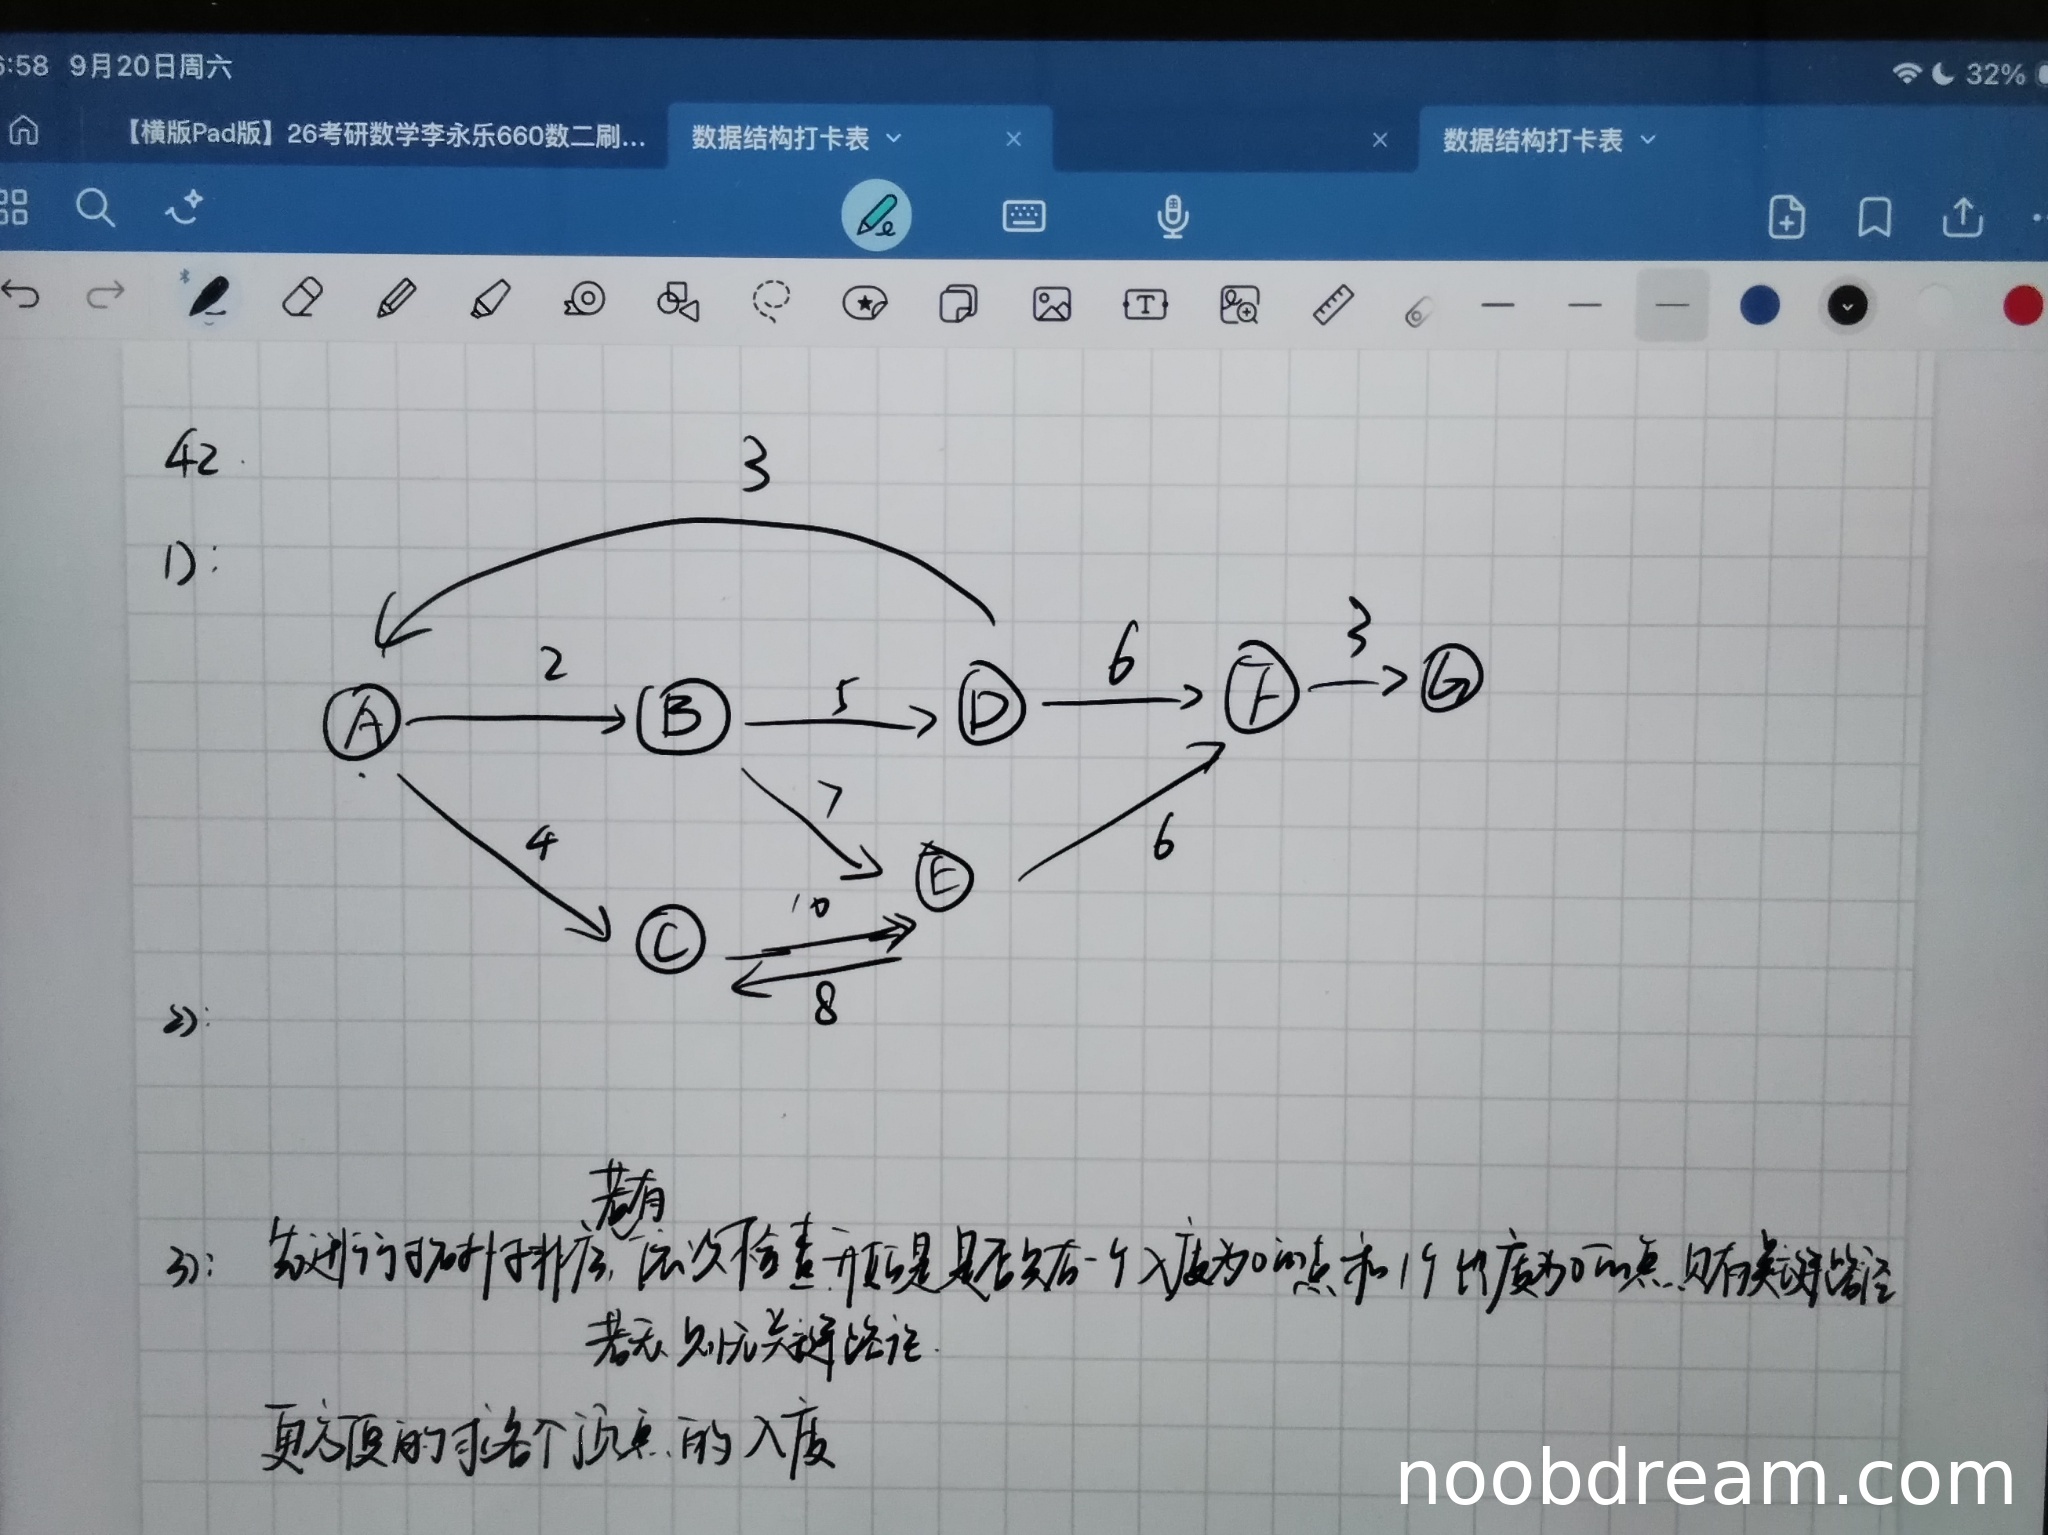 6:58 9月20日周六
32%
【横版Pad版】26考研数学李永乐660数二刷...
数据结构打卡表
数据结构打卡表
42.
1):
3
A
2
B
5
D
6
F
3
G
4
7
E
6
C
10
8
2):
若有
3): 先进行拓扑排序, 依次检查开始是是否只有一个入度为0的点和1个出度为0的点.则有关键路径
若无 则无关键路径.
更方便的求各个顶点的入度
noobdream.com